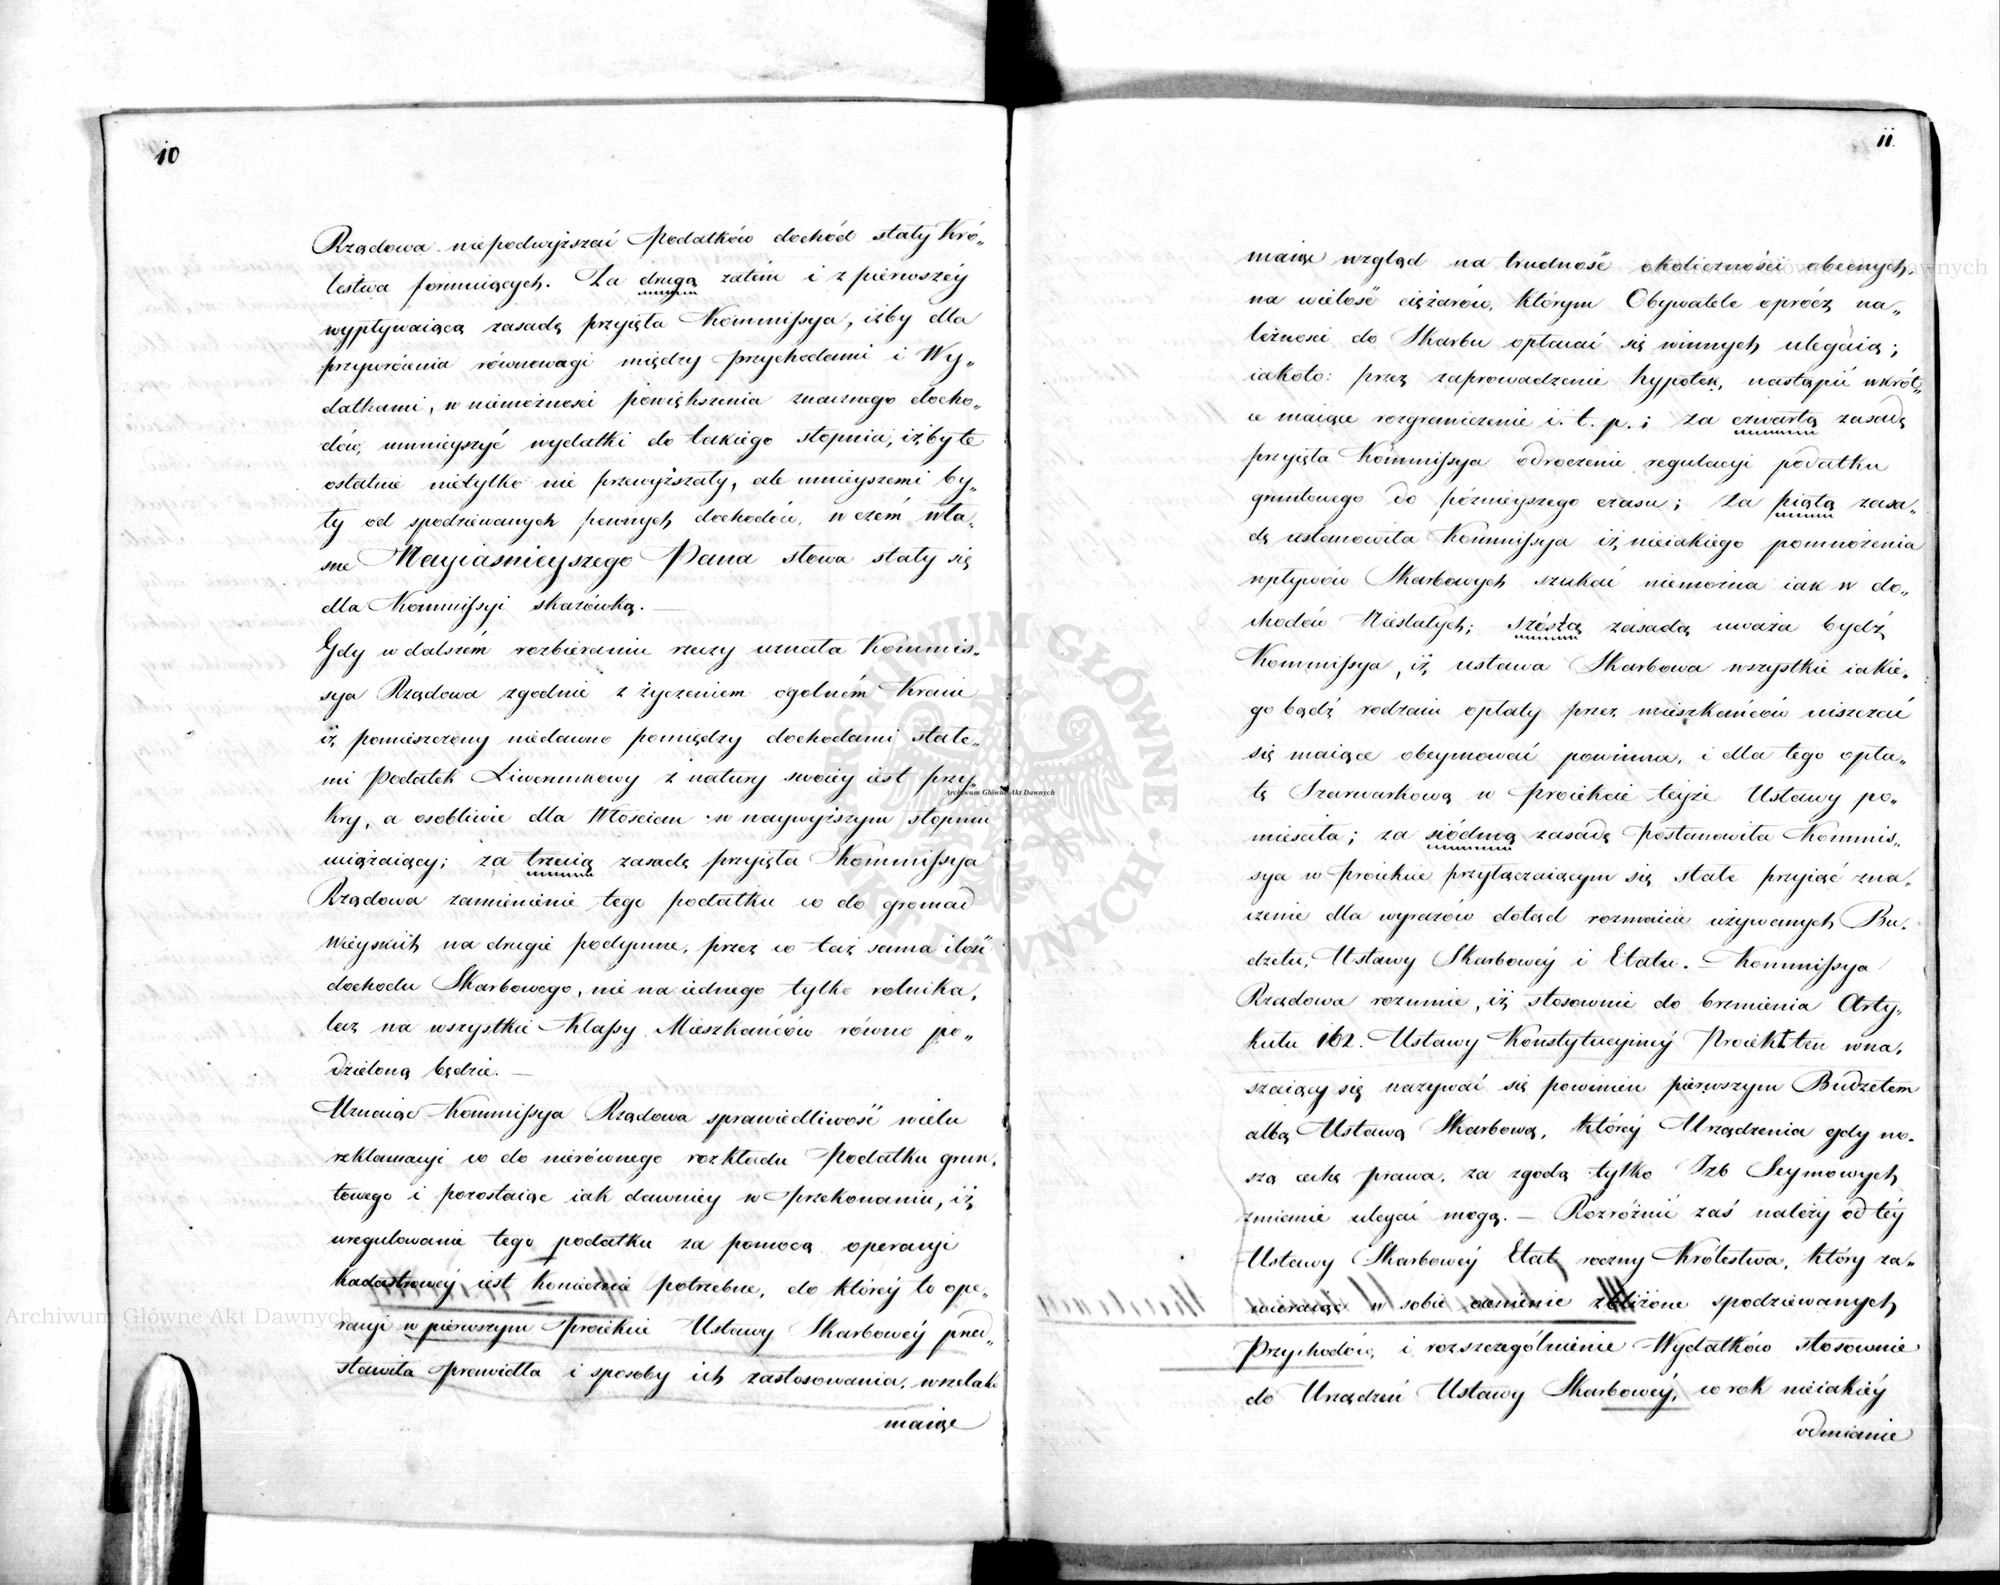 10
Rządowa niepodwyższać Podatków dochód stały Kró„
lestwa formuiących. Za drugą zatem i z pierwszéy
wypływaiącą zasadę przyięła Kommissya, iżby dla
przywrócenia równowagi między przychodami i Wy„
datkami, w niemożności powiększenia znacznego docho„
dów, umnieyszyć wydatki do takiego stopnia, iżby te
ostatnie nietylko nie przewyższały, ale mnieyszemi by„
ły od spodziewanych pewnych dochodów, w czém wła„
sne Nayiaśnieyszego Pana słowa stały się
dla Kommissyi skazówką. —
Gdy w dalszém rozbieraniu rzeczy uznała Kommis„
sya Rządowa zgodnie z życzeniem ogólném Kraiu
iż pomieszczony niedawno pomiędzy dochodami stałe„
mi Podatek Liwerunkowy z natury swoiéy iest przy„
kry, a osobliwie dla Włościan w naywyższym stopniu
uciążaiący; za trzecią zasadę przyięła Kommissya
Rządowa zamienienie tego podatku co do gromad
Wieyskich na drugie podymne, przez co taż sama ilość
dochodu Skarbowego, nie na iednego tylko rolnika,
lecz na wszystkie Klassy Mieszkańców równo po„
dzieloną będzie. —
Uznaiąc Kommissya Rządowa sprawiedliwość wielu
reklamacyi co do nierównego rozkładu Podatku grun„
towego i pozostaiąc iak dawniéy w przekonaniu, iż
uregulowanie tego podatku za pomocą operacyi
Kadastrowéy iest koniecznie potrzebne, do któréy to ope„
racyi w pierwszym Proiekcie Ustawy Skarbowéy przed„
stawiła prawidła i sposoby ich zastosowania, wszelako
maiąc
11.
maiąc wzgląd na trudność okoliczności obecnych,
na wielość ciężarów, którym Obywatele oprócz na„
leżności do Skarbu opłacać się winnych ulegaią;
iakoto: przez zaprowadzenie hypotek, nastąpić wkrót„
ce maiące rozgraniczenie i. t. p.; Za czwartą zasadę
przyięła Kommissya odroczenie regulacyi podatku
gruntowego do późnieyszego czasu; Za piątą zasa„
dę ustanowiła Kommissya iż nieiakiego pomnożenia
wpływów Skarbowych szukać niemożna iak w do„
chodów Niestałych; szóstą zasadą uważa bydź
Kommissya, iż ustawa Skarbowa wszystkie iakie„
go bądź rodzaiu opłaty przez mieszkańców uiszczać
się maiące obeymować powinna, i dla tego opła„
tę Szarwarkową w Proiekcie teyże Ustawy po„
mieściła; za siódmą zasadę postanowiła Kommis„
sya w Proiekcie przyłączaiącym się stałe przyiąć zna„
czenie dla wyrazów dotąd rozmaicie używanych Bu„
dżetu, Ustawy Skarbowéy i Etatu. — Kommissya
Rządowa rozumie, iż stosownie do brzmienia Arty„
kułu 162. Ustawy Konstytucyinéy Proiekt ten wna„
szaiący się nazywać się powinien pierwszym Budżetem
albą Ustawą Skarbową, któréy Urządzenia gdy no„
szą cechę prawa, za zgodą tylko Izb Seymowych
zmianie ulegać mogą. — Rozróżnić zaś należy od téy
Ustawy Skarbowéy Etat roczny Królestwa, który za„
wieraiąc w sobie ocenienie zbliżone spodziewanych
Przychodów, i rozszczególnienie Wydatków stosownie
do Urządzeń Ustawy Skarbowéy, co rok nieiakiéy
odmianie
Archiwum Główne Akt Dawnych
Archiwum Główne Akt Dawnych
Archiwum Główne Akt Dawnych
ARCHIWUM GŁÓWNE AKT DAWNYCH